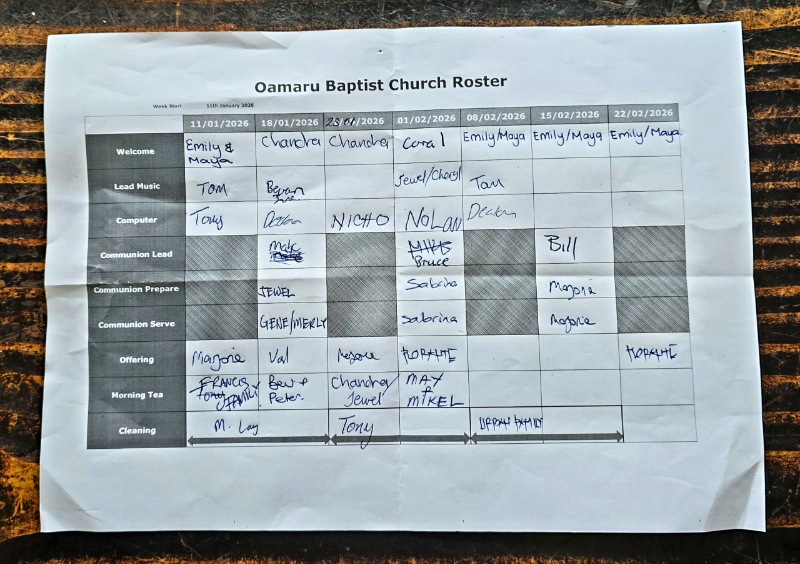 Oamaru Baptist Church Roster
Week Start 11th January 2026
11/01/2026 18/01/2026 25/01/2026 01/02/2026 08/02/2026 15/02/2026 22/02/2026
Welcome Emily & Maya Chandra Chandra Coral Emily/Maya Emily/Maya Emily/Maya
Lead Music Tom Bevan Jewel/Cheryl Tom
Computer Tony Declan NICHO NOLAN Declan
Communion Lead Bruce Bill
Communion Prepare JEWEL Sabrina Marjorie
Communion Serve GENE/MERLY Sabrina Marjorie
Offering Marjorie Val Marjorie
Morning Tea FRANCIS FAMILY Bev + Peter Chandra/Jewel MAY & MIKEL
Cleaning M. Lay Tony FAMILY